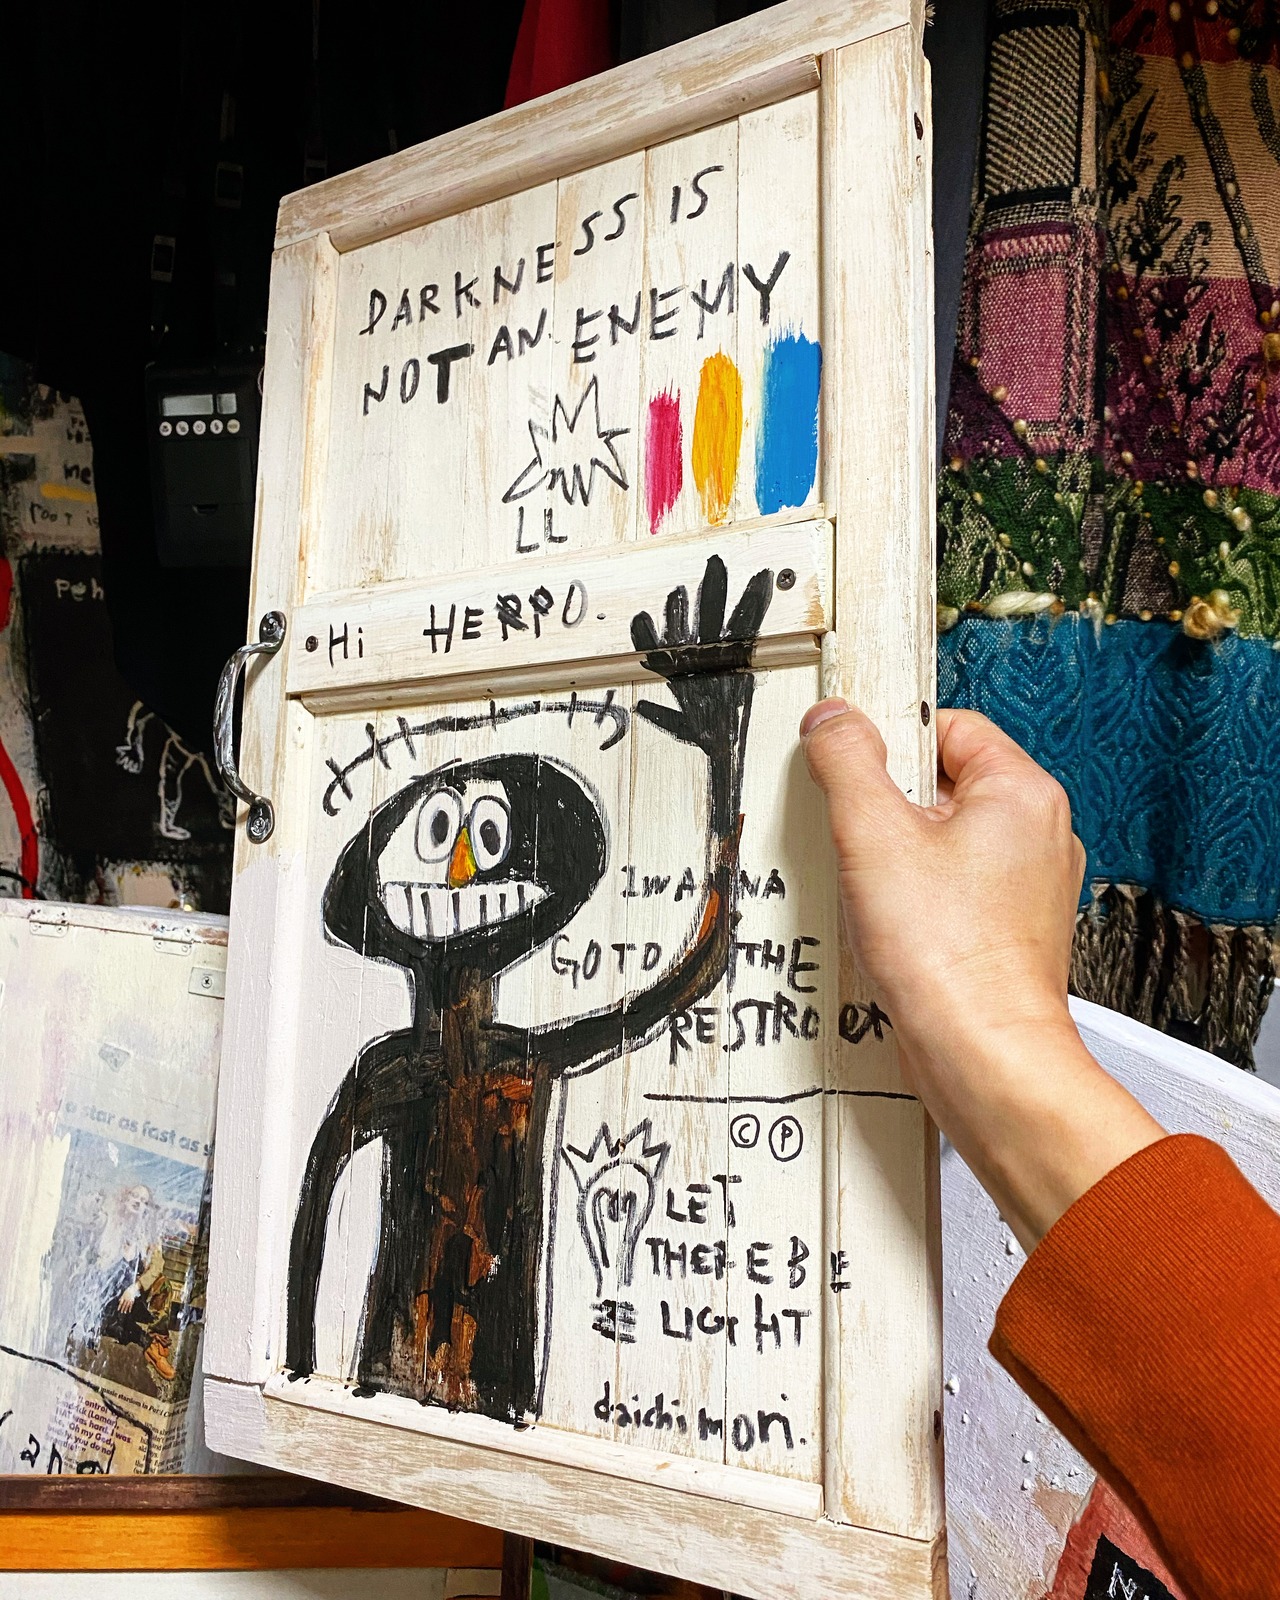 DARKNESS IS
NOT AN ENEMY
LL
Hi HERPO.
I WANNA
GO TO THE
RESTROOM
© Ⓟ
LET
THERE BE
LIGHT
daichi mon.
me
root is
Peh
a star as fast as y